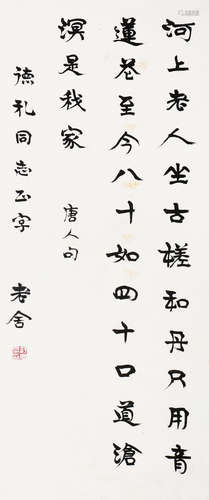 河上老人坐古槎和丹只用青
蓮花至今八十如四十口道滄
溟是我家 唐人句
德孔同志正字 老舍